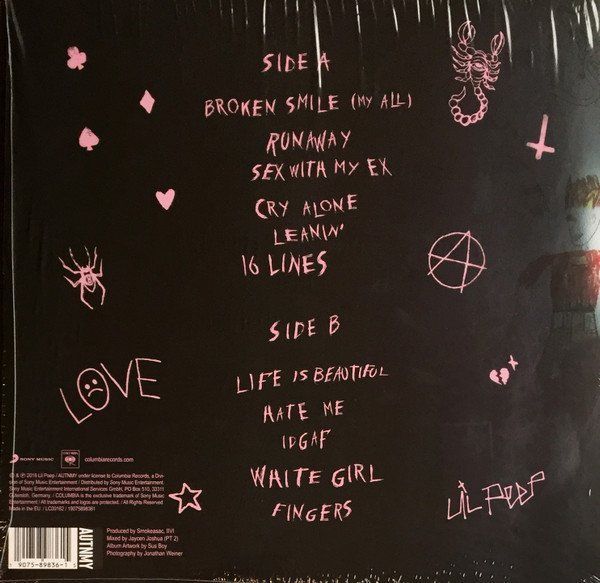 SIDE A
BROKEN SMILE (MY ALL)
RUNAWAY
SEX WITH MY EX
CRY ALONE
LEANIN'
16 LINES
SIDE B
LIFE IS BEAUTIFUL
HATE ME
IDGAF
WHITE GIRL
FINGERS
LOVE
LIL PEEP
SONY MUSIC
columbiarecords.com
℗ & © 2018 Lil Peep / AUTNMY under license to Columbia Records, a Divi-
sion of Sony Music Entertainment / Distributed by Sony Music Entertainment.
Sony Music Entertainment International Services GmbH, PO Box 510, 33311
Gütersloh, Germany. / COLUMBIA is the exclusive trademark of Sony Music
Entertainment / All trademarks and logos are protected. / All Rights Reserved.
Made in the EU. / LC00162 / 19075898361
AUTNMY
Produced by Smokeasac, IIVI
Mixed by Jaycen Joshua (PT 2)
Album Artwork by Sus Boy
Photography by Jonathan Weiner
1 9075-89836-1